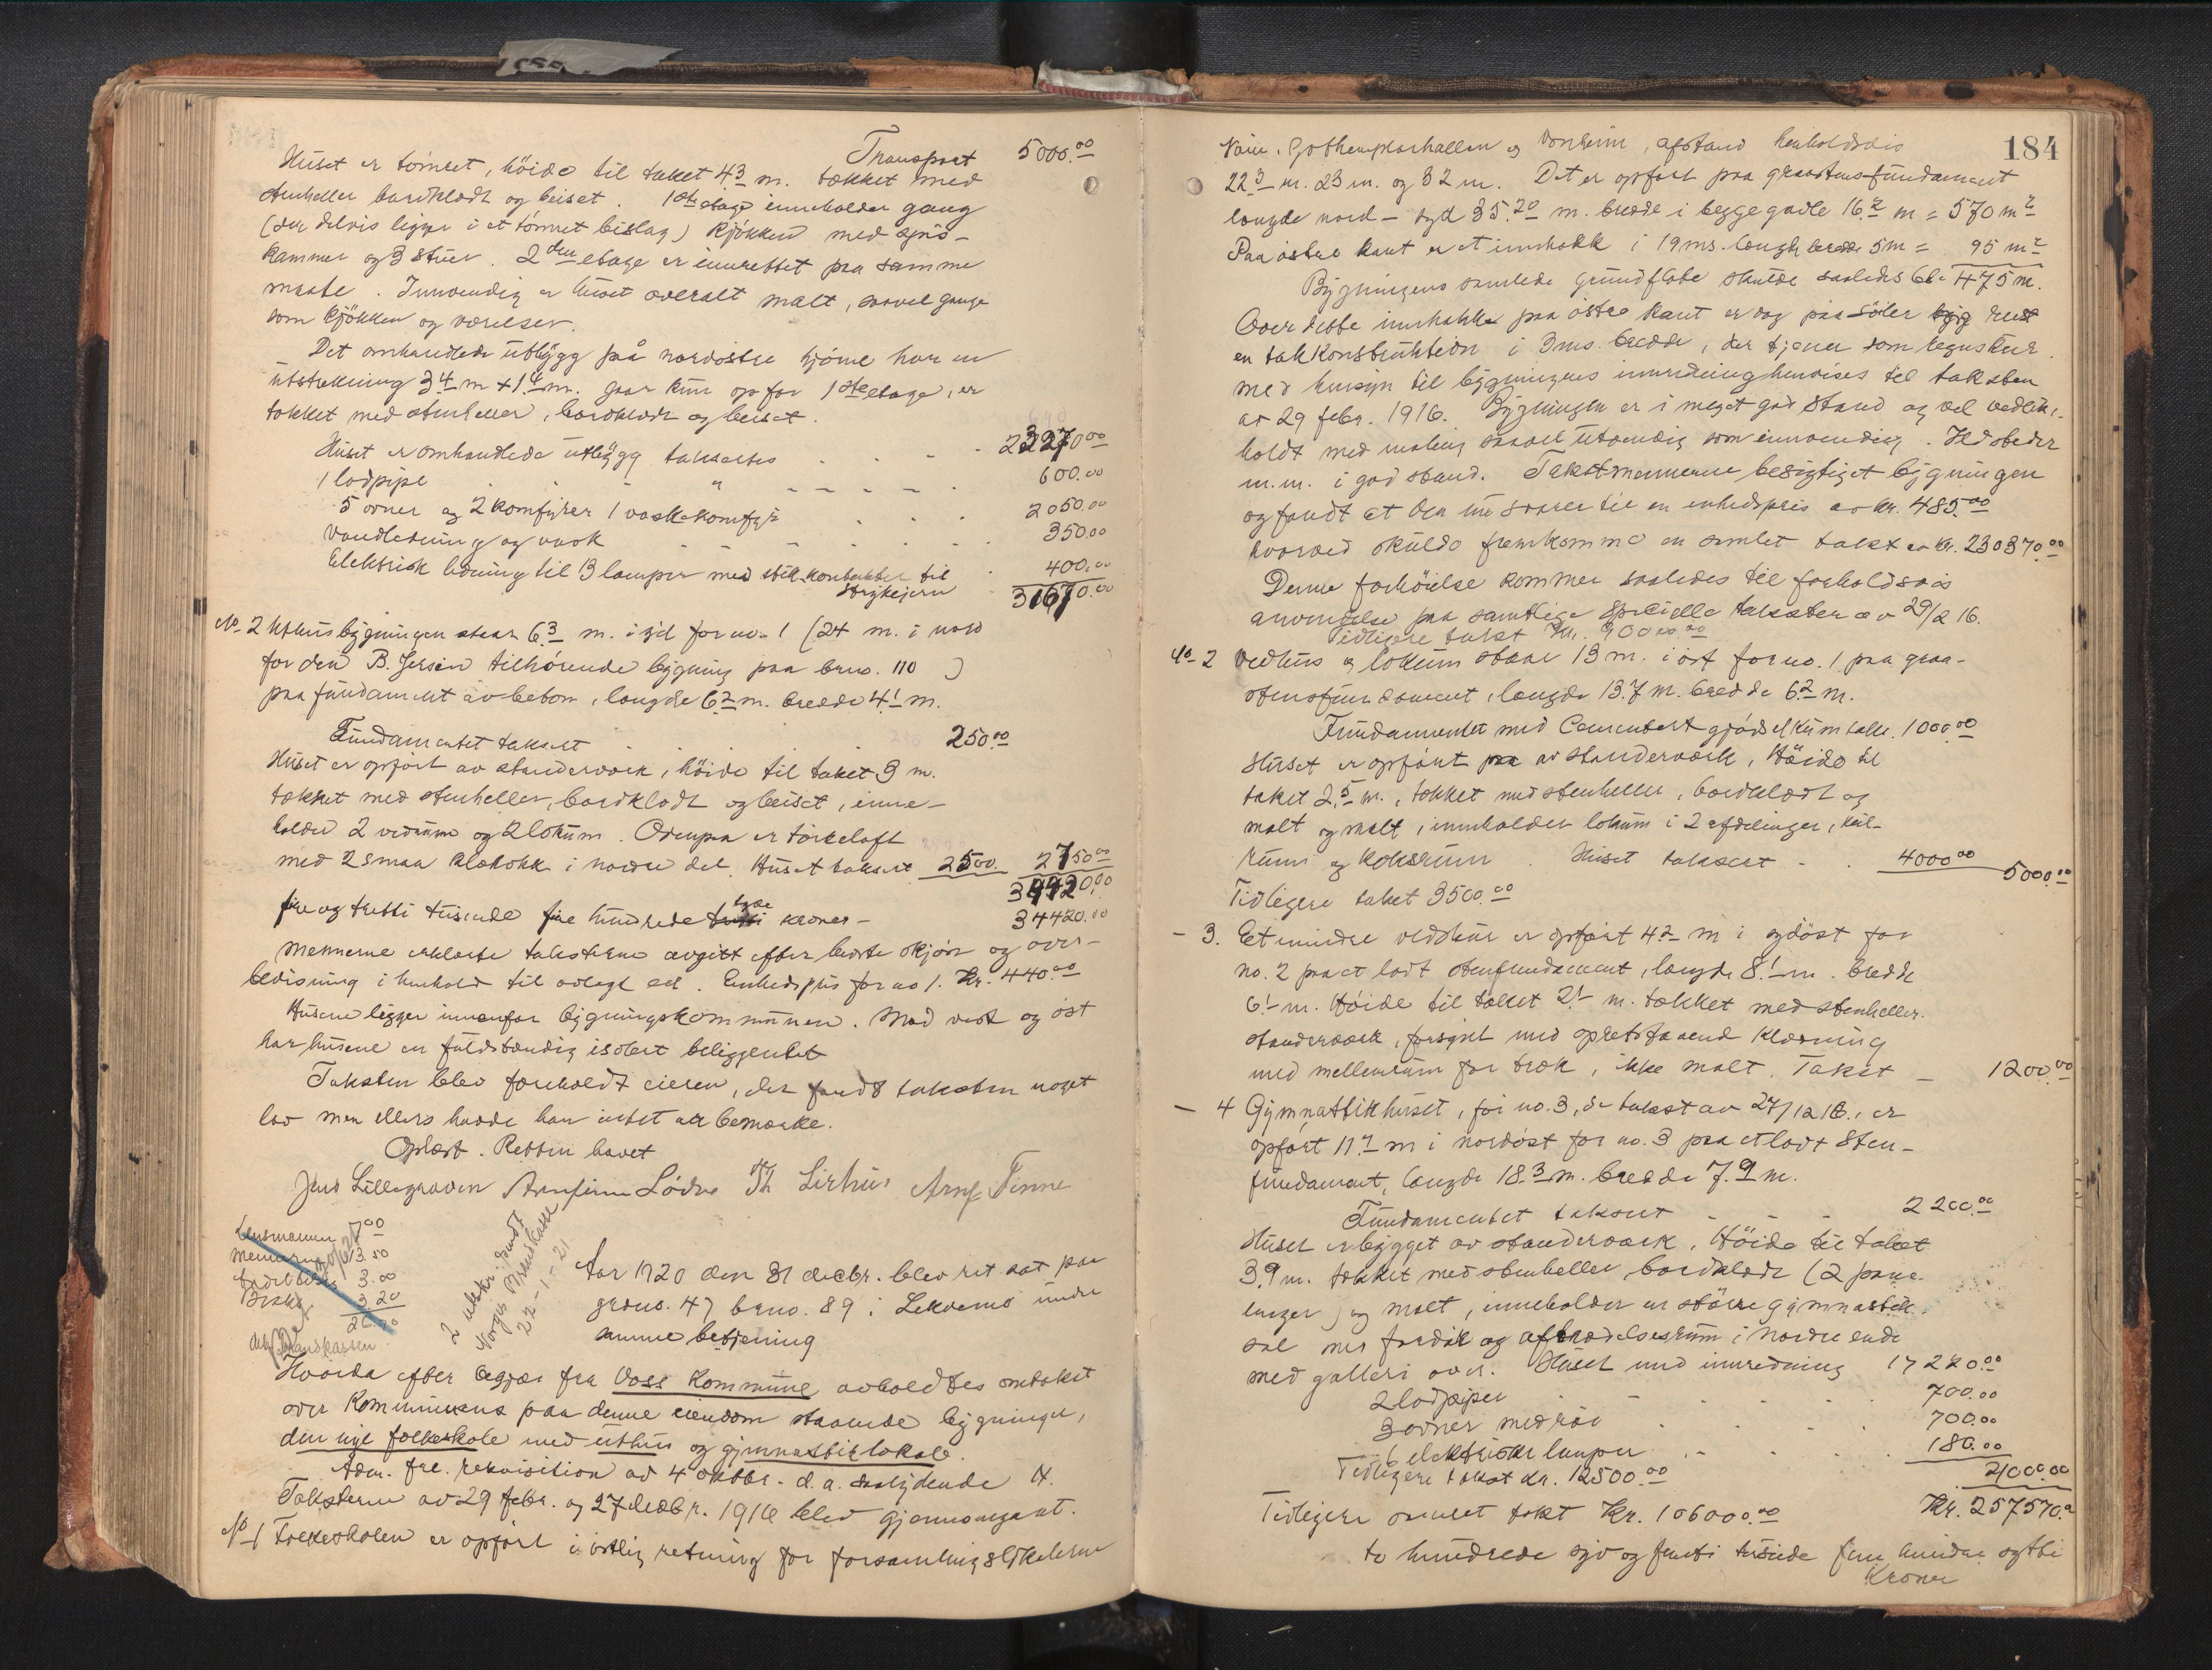 Transport 5000.00
Huset er tømret, höide til taket 4.3 m. tækket med
stenheller bordklædt og beiset. 1ste etage inneholder gang
(der delvis ligger i et tömret bislag) kjøkken med spis-
kammer og 3 stuer. 2den etage er innrettet paa samme
maate. Innvendig er huset overalt malt, saavel gange
som kjökken og værelser.
Det omhandlede utbygg på nordöstre hjörne har en
utstrekning 3.4 m x 1.4 m. gaar kun op for 1ste etage, er
tækket med stenheller, bordklædt og beiset.
Huset omhandlede utbygg takseres 23270.00
1 lodpipe " 600.00
5 ovner og 2 komfyrer 1 vaskekomfyr 2050.00
Vandledning og vask 350.00
Elektrisk ledning til 13 lamper med stikkontakter til 400.00
strykejern 31670.00
No 2 Uthusbygningen staar 6.3 m. i syd for no. 1 (24 m. i nord
for den B. Jersin tilhörende bygning paa brno. 110)
paa fundament av beton, længde 6.2 m. bredde 4.1 m.
Fundamentet taksert 250.00
Huset er opfört av standerværk, höide til taket 3 m.
tækket med stenheller, bordklædt og beiset, inne-
holder 2 vedrum og 2 lokum. Ovenpaa er törkeloft
med 2 smaa kot i nordre del. Huset taksert 2500. 2750.00
34420.00
fire og tretti tusende fire hundrede tyve kroner - 34420.00
Mennerne erklærte taksterne avgitt efter beste skjön og over-
bevisning i henhold til avlagt ed. Enhedspris for no 1. Kr. 440.00
Husene ligger innenfor bygningskommunen. Mod vest og öst
har husene en fuldstændig isolert beliggenhet
Taksten blev foreholdt eieren, der fandt taksten noget
lav men ellers havde han intet at bemerke.
Oplæst. Retten hævet
Jens Lillegraven Arnfinn Lödve Th Lirhus Arne Finne
Lensmannen 7.00
Mennerne 13.50
3.00
3.20
26.70
2 utskr. sendt
Norges Brandkasse
22-1-21
Aar 1920 den 31 decbr. blev ret sat paa
grdno. 47 brno. 89 i Lekvemo under
samme betjening
Hvorda efter begjær fra Voss kommune avholdtes omtakst
over kommunens paa denne eiendom staaende bygninger,
den nye folkeskole med uthus og gymnastiklokale.
Adm. fre. rekvisition av 4 oktbr. d.a. saalydende
Taksterne av 29 febr. og 27 decbr. 1916 blev gjennomgaat.
No 1 Folkeskolen er opfört i östlig retning for forsamlingslokalerne
184
Vaur, Gothemplarhallen og Vonheim, afstand henholdsvis
22.3 m. 23 m. og 32 m. Det er opfört paa graastensfundament
længde nord - syd 35.20 m. bredde i begge gavle 16.2 m = 570 m2
Paa östre kant er et innhakk i 19 ms. længde bredde 5 m = 95 m2
Bygningens samlede grundflate skulde saaledes bli 475 m.
Over dette innhakk paa östre kant er dog paa söiler reist
en takkonstruktion i 3 ms. bredde, der tjener som regnskur.
Med hensyn til bygningens innredning henvises til taksten
av 29 febr. 1916. Bygningen er i meget god stand og vel vedlike-
holdt med maling saavel utvendig som innvendig. Ildsteder
m.m. i god stand. Takstmennerne besigtiget bygningen
og fandt at den nu svarer til en enhedspris av kr. 485.00
hvorved skulde fremkomme en samlet takst av kr. 230370.00
Denne forhöielse kommer saaledes til forholdsvis
anvendelse paa samtlige specielle takster av 29/2 16.
Tidligere takst Kr. 90000.00
No 2 Vedhus og lokum staar 13 m. i öst for no. 1 paa graa-
stensfundament, længde 13.7 m. bredde 6.2 m.
Fundamentet med Cementert gjödselkum takse. 1000.00
Huset er opfört av standerværk, Höide til
taket 2.5 m., tækket med stenheller, bordklædt og
malt og malt, inneholder lokum i 2 afdelinger, kul-
rum og koksrum. Huset taksert 4000.00 5000.00
Tidligere takst 3500.00
- 3. Et mindre vedskur er opfört 4.2 m i sydöst for
no. 2 paa et lodt stenfundament, længde 8.1 m. bredde
6.1 m. Höide til taket 2.1 m. tækket med stenheller.
standerværk, forsynt med opretstaaend klædning
med mellemrum for træk, ikke malt. Takst - 1200.00
- 4 Gymnastikhuset, för no. 3, se takst av 27/12 16., er
opfört 11.7 m i nordöst for no. 3 paa et lodt Sten-
fundament, længde 18.3 m. bredde 7.9 m.
Fundamentet taksert 2200.00
Huset er bygget av standerværk, Höide til taket
3.9 m. tækket med stenheller bordklædt (2 pane-
linger) og malt, inneholder en större gymnastik-
sal med fordör og afklædelsesrum i nordre ende
med galleri over. Huset med innredning 17220.00
2 lodpiper 700.00
3 ovner med rör 700.00
6 elektriske lamper 180.00
Tidligere takst Kr. 12500.00 21000.00
Tidligere samlet takst Kr. 106000.00 Kr. 257570.00
to hundrede syv og femti tusinde fem hundre sytti
Kroner